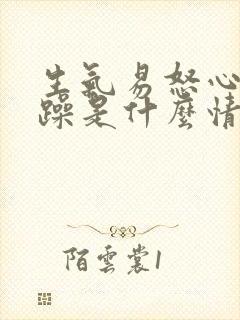 生氣易怒心
躁是什麼情
陌雲裳1